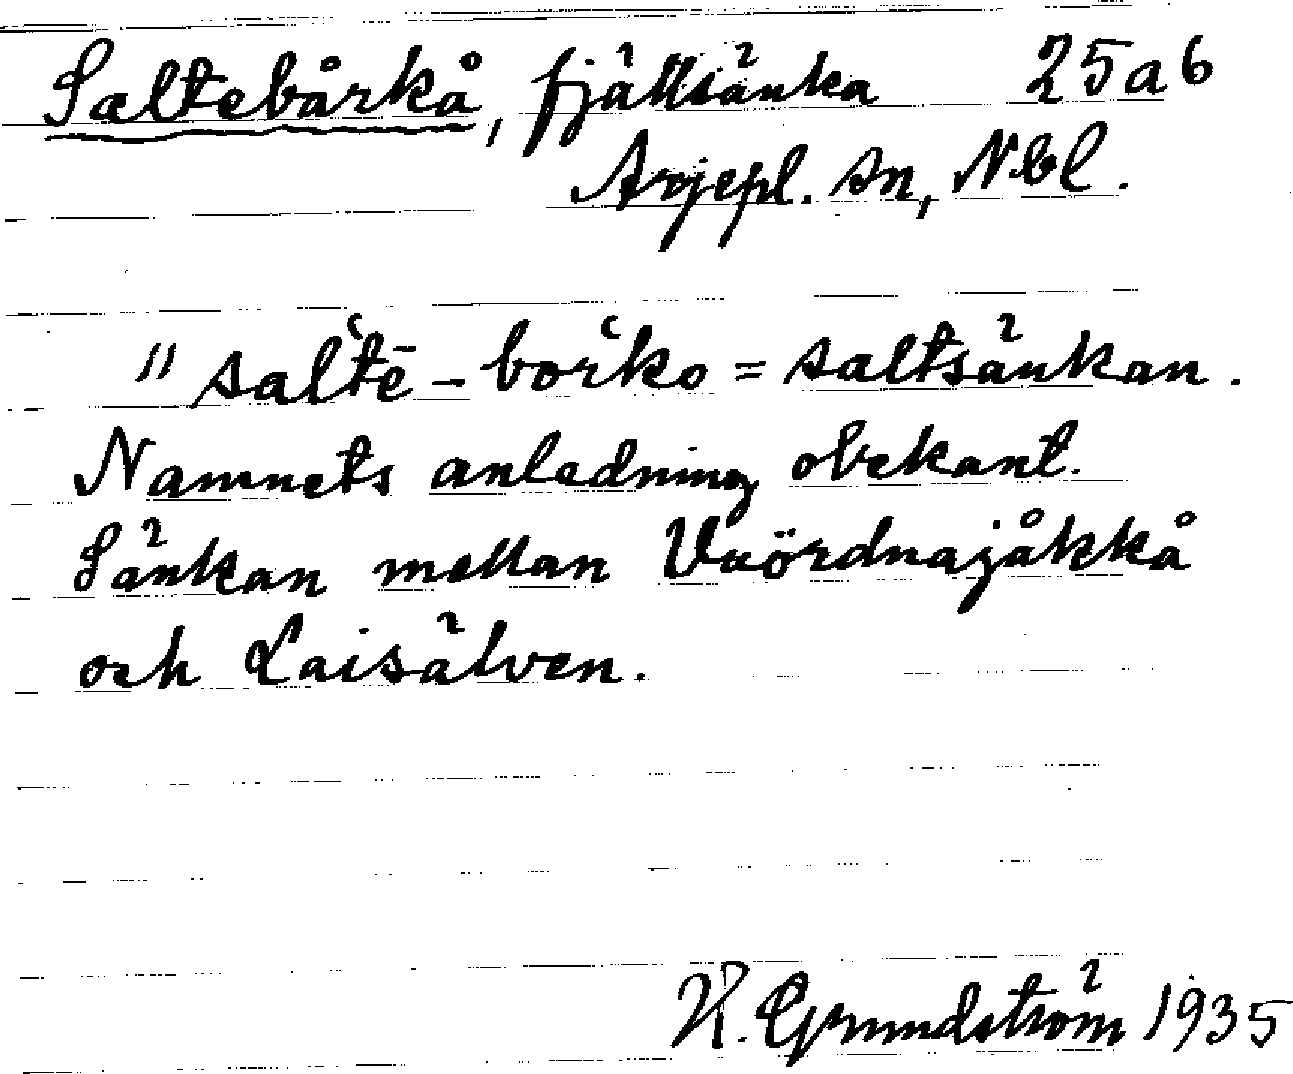 Saltebårkå, fjällsänka 25a6
Arjepl. sn, Nbl.
" salʻtē - borʻko = saltsänkan.
Namnets anledning obekant.
Sänkan mellan Vuördnajåkkå
och Laisälven.
H. Grundström 1935